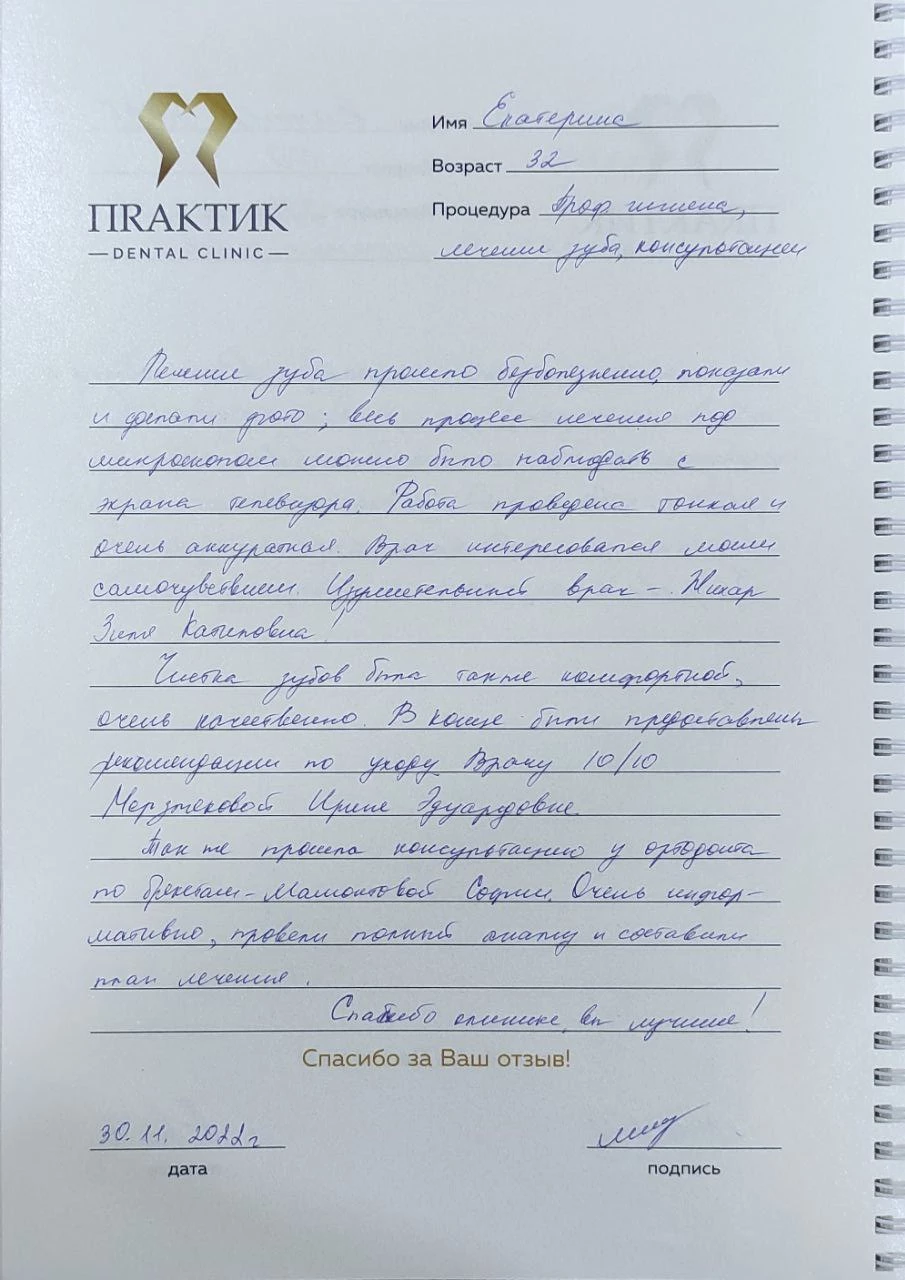 ПRАКТИК
DENTAL CLINIC
Имя Екатерина
Возраст 32
Процедура Проф. гигиена,
лечение зуба, консультация
Лечение зуба прошло безболезненно, показали
и делали фото; весь процесс лечения под
микроскопом можно было наблюдать с
экрана телевизора. Работа проведена тонкая и
очень аккуратная. Врач интересовался моим
самочувствием. Изумительный врач - Жихар
Зиля Катиповна!
Чистка зубов была также комфортной,
очень качественно. В конце были предоставлены
рекомендации по уходу. Врачу 10/10
Мерзляковой Ирине Эдуардовне.
Так же прошла консультацию у ортодонта
по брекетам - Мамонтовой Софии. Очень инфор-
мативно, провели полный анализ и составили
план лечения.
Спасибо клинике, вы лучшие!
Спасибо за Ваш отзыв!
30.11. 2022 г
дата
подпись